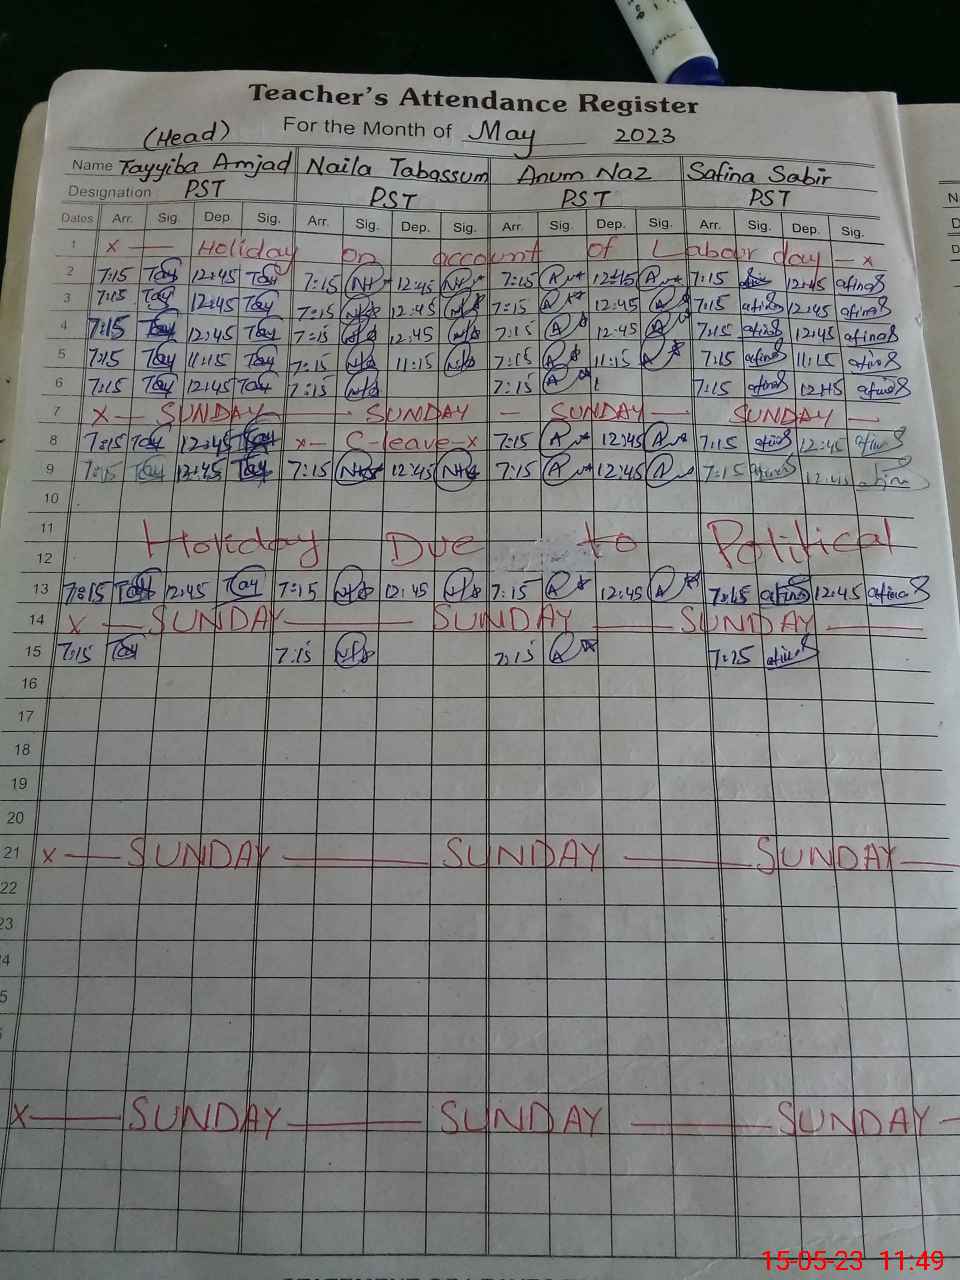 Teacher's Attendance Register
(Head) For the Month of May 2023
Name Tayyiba Amjad Naila Tabassum Anum Naz Safina Sabir
Designation PST PST PST PST
Dates Arr. Sig. Dep Sig. Arr. Sig. Dep. Sig. Arr. Sig. Dep. Sig. Arr. Sig. Dep. Sig.
1 x — Holiday on account of Labour day - x
2 7:15 Tay 12:45 Tay 7:15 12:45 7:15 12:45 7:15 12:45 afinaS
3 7:15 Tay 12:45 Tay 7:15 12:45 7:15 12:45 7:15 afinaS 12:45 afinaS
4 7:15 Tay 12:45 Tay 7:15 12:45 7:15 12:45 7:15 afinaS 12:45 afinaS
5 7:15 Tay 11:15 Tay 7:15 11:15 7:15 11:15 7:15 afinaS 11:15 afinaS
6 7:15 Tay 12:45 Tay 7:15 7:15 7:15 afinaS 12:45 afinaS
7 x — SUNDAY — SUNDAY — SUNDAY — SUNDAY —
8 7:15 Tay 12:45 Tay x- C-leave-x 7:15 12:45 7:15 afinaS 12:45 afinaS
9 7:15 Tay 12:45 Tay 7:15 12:45 7:15 12:45 7:15 afinaS 12:45
10
11
Holiday Due to Political
12
13 7:15 Tay 12:45 Tay 7:15 12:45 7:15 12:45 7:15 afinaS 12:45 afinaS
14 x — SUNDAY — SUNDAY — SUNDAY —
15 7:15 Tay 7:15 7:15 7:15 afinaS
16
17
18
19
20
21 x — SUNDAY — SUNDAY — SUNDAY —
22
23
4
5
x — SUNDAY — SUNDAY — SUNDAY —
15-05-23 11:49